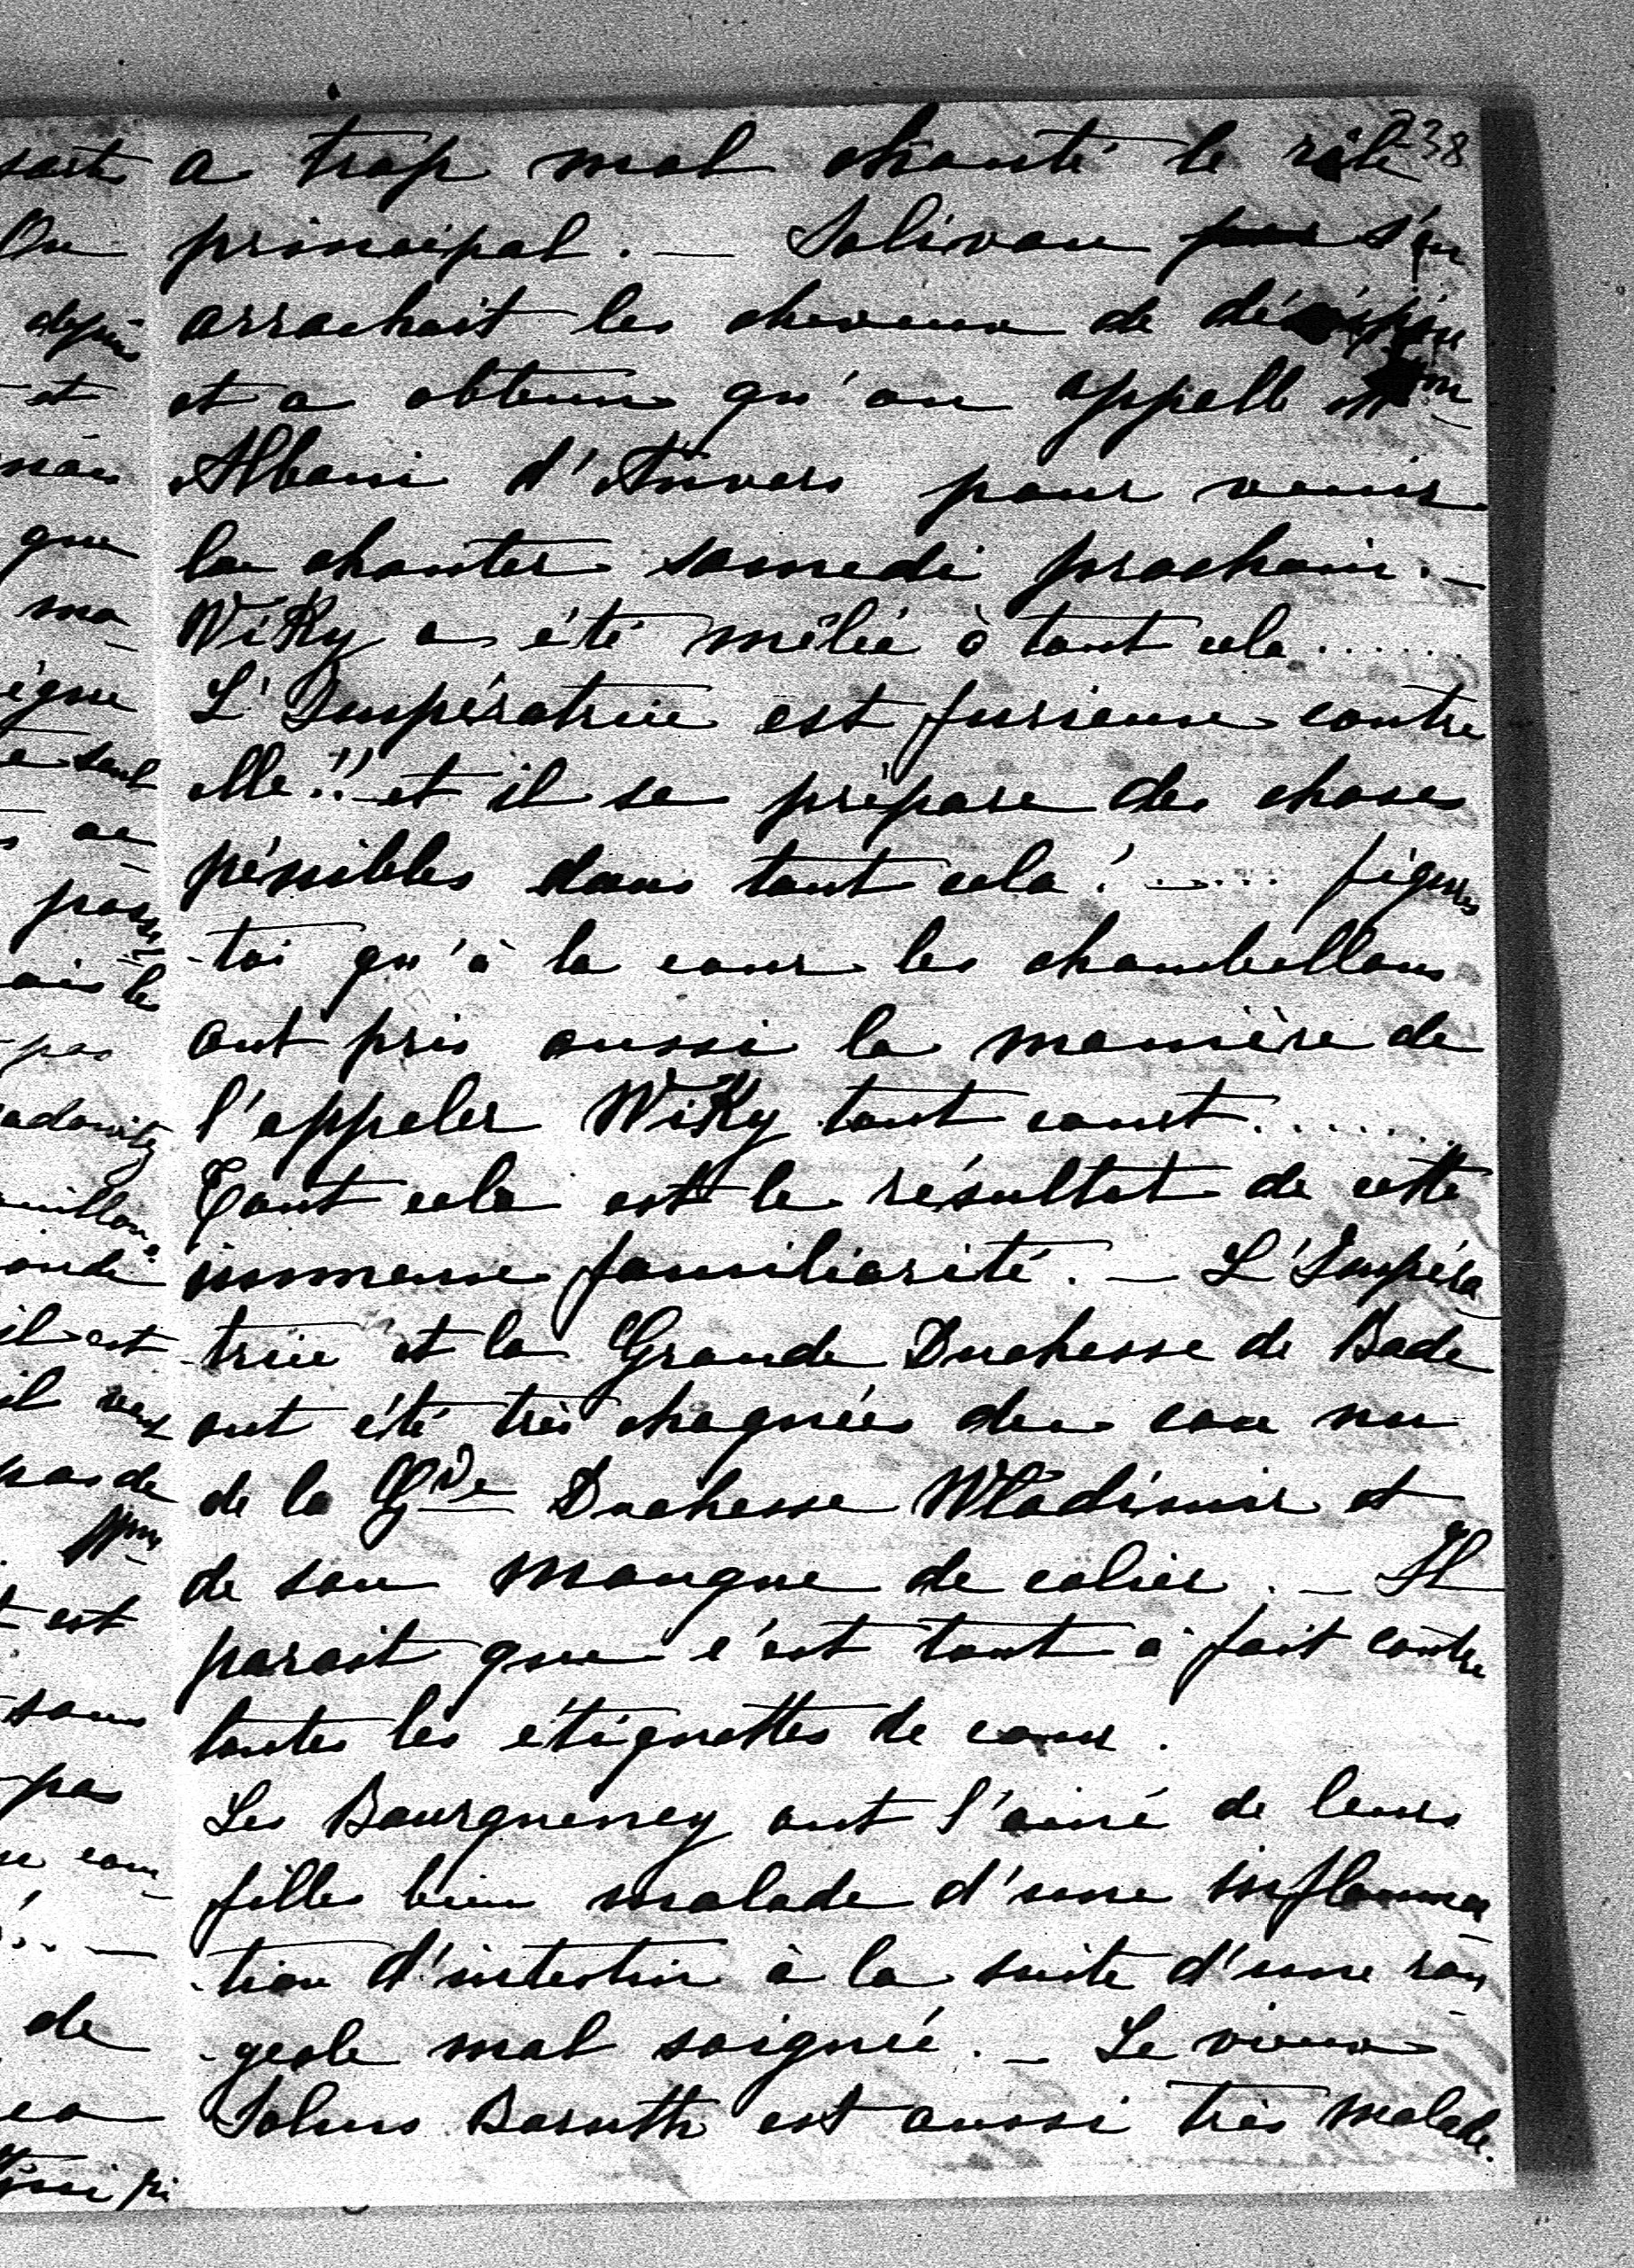 238
a trop mal chanté le rôle
principal. — Solivan s'en
arrachait les cheveux de
et a obtenu qu'on appelle
Albani d'Anvers pour venir
la chanter samedi prochain. —
WiKy a été mêlée à tout cela ......
L'Impératrice est furieuse contre
elle!! et il se prépare des choses
pénibles dans tout cela! ..... figures
-toi qu'à la cour les chambellans
ont pris aussi la manière de
l'appeler WiKy tout court .......
Tout cela est le résultat de cette
immense familiarité. — L'Impéra
-trice et la Grande Duchesse de Bade
ont été très choquées du cou nu
de la Gde Duchesse Wladimir et
de son manque de colier. — Il
parait que c'est tout à fait contre
toutes les étiquettes de cour.
Les Bourqueney ont l'ainé de leurs
filles bien malade d'une inflamma
-tion d'intestin à la suite d'une rou
-geole mal soignée. — Le vieux
Solms Baruth est aussi très malade.